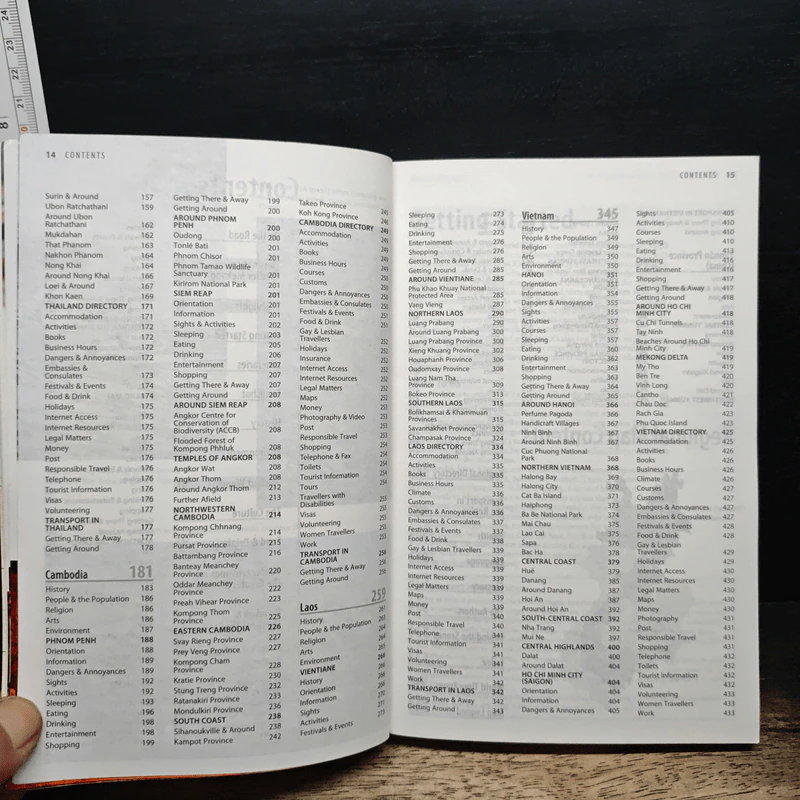 24
23
22
21
8
14 CONTENTS
Surin & Around 157
Ubon Ratchathani 159
Around Ubon
Ratchathani 162
Mukdahan 162
That Phanom 163
Nakhon Phanom 164
Nong Khai 164
Around Nong Khai 166
Loei & Around 167
Khon Kaen 169
THAILAND DIRECTORY 171
Accommodation 171
Activities 172
Books 172
Business Hours 172
Dangers & Annoyances 172
Embassies &
Consulates 173
Festivals & Events 174
Food & Drink 174
Holidays 175
Internet Access 175
Internet Resources 175
Legal Matters 175
Money 175
Post 175
Responsible Travel 176
Telephone 176
Tourist Information 176
Visas 176
Volunteering 177
TRANSPORT IN
THAILAND 177
Getting There & Away 177
Getting Around 178
Cambodia 181
History 183
People & the Population 186
Religion 186
Arts 186
Environment 187
PHNOM PENH 188
Orientation 188
Information 189
Dangers & Annoyances 189
Sights 192
Activities 192
Sleeping 193
Eating 196
Drinking 198
Entertainment 198
Shopping 199
Getting There & Away 199
Getting Around 200
AROUND PHNOM
PENH 200
Oudong 200
Tonlé Bati 201
Phnom Chisor 201
Phnom Tamao Wildlife
Sanctuary 201
Kirirom National Park 201
SIEM REAP 201
Orientation 201
Information 201
Sights & Activities 202
Sleeping 203
Eating 205
Drinking 206
Entertainment 207
Shopping 207
Getting There & Away 207
Getting Around 207
AROUND SIEM REAP 208
Angkor Centre for
Conservation of
Biodiversity (ACCB) 208
Flooded Forest of
Kompong Phhluk 208
TEMPLES OF ANGKOR 208
Angkor Wat 208
Angkor Thom 208
Around Angkor Thom 212
Further Afield 213
NORTHWESTERN
CAMBODIA 214
Kompong Chhnang
Province 214
Pursat Province 215
Battambang Province 216
Banteay Meanchey
Province 220
Oddar Meanchey
Province 222
Preah Vihear Province 223
Kompong Thom
Province 225
EASTERN CAMBODIA 226
Svay Rieng Province 227
Prey Veng Province 227
Kompong Cham
Province 228
Kratie Province 230
Stung Treng Province 232
Ratanakiri Province 233
Mondulkiri Province 236
SOUTH COAST 238
Sihanoukville & Around 238
Kampot Province 242
Takeo Province
Koh Kong Province 245
CAMBODIA DIRECTORY
Accommodation
Activities
Books
Business Hours
Courses
Customs
Dangers & Annoyances
Embassies & Consulates
Festivals & Events
Food & Drink
Gay & Lesbian
Travellers
Holidays
Insurance
Internet Access
Internet Resources
Legal Matters
Maps
Money
Photography & Video
Post
Responsible Travel
Shopping
Telephone & Fax
Toilets
Tourist Information
Tours
Travellers with
Disabilities
Visas
Volunteering
Women Travellers
Work
TRANSPORT IN
CAMBODIA
Getting There & Away
Getting Around
Laos 259
History 261
People & the Population
Religion
Arts
Environment
VIENTIANE
History
Orientation
Information
Sights
Activities
Festivals & Events
CONTENTS 15
Sleeping 273
Eating 274
Drinking 275
Entertainment 276
Shopping 276
Getting There & Away 285
Getting Around 285
AROUND VIENTIANE 285
Phu Khao Khuay National
Protected Area 285
Vang Vieng 287
NORTHERN LAOS 290
Luang Prabang 290
Around Luang Prabang 300
Luang Prabang Province 300
Xieng Khuang Province 302
Houaphanh Province 306
Oudomxay Province 308
Luang Nam Tha
Province 309
Bokeo Province 313
SOUTHERN LAOS 315
Bolikhamsai & Khammuan
Provinces 315
Savannakhet Province 320
Champasak Province 324
LAOS DIRECTORY 334
Accommodation 334
Activities 335
Books 335
Business Hours 335
Climate 336
Customs 336
Dangers & Annoyances 336
Embassies & Consulates 337
Festivals & Events 337
Food & Drink 338
Gay & Lesbian Travellers 339
Holidays 339
Internet Access 339
Internet Resources 339
Legal Matters 339
Maps 339
Money 339
Post 340
Responsible Travel 340
Telephone 341
Tourist Information 341
Visas 341
Volunteering 341
Women Travellers 341
Work 342
TRANSPORT IN LAOS 342
Getting There & Away 342
Getting Around 343
Vietnam 345
History 347
People & the Population 349
Religion 349
Arts 350
Environment 350
HANOI 351
Orientation 351
Information 354
Dangers & Annoyances 355
Sights 355
Activities 357
Courses 357
Sleeping 357
Eating 360
Drinking 362
Entertainment 363
Shopping 363
Getting There & Away 364
Getting Around 365
AROUND HANOI 366
Perfume Pagoda 366
Handicraft Villages 367
Ninh Binh 367
Around Ninh Binh 367
Cuc Phuong National
Park 368
NORTHERN VIETNAM 368
Halong Bay 369
Halong City 370
Cat Ba Island 371
Haiphong 373
Ba Be National Park 374
Mai Chau 375
Lao Cai 375
Sapa 376
Bac Ha 378
CENTRAL COAST 379
Hué 379
Danang 385
Around Danang 387
Hoi An 387
Around Hoi An 392
SOUTH-CENTRAL COAST 392
Nha Trang 392
Mui Ne 397
CENTRAL HIGHLANDS 400
Dalat 400
Around Dalat 404
HO CHI MINH CITY
(SAIGON) 404
Orientation 404
Information 404
Dangers & Annoyances 405
Sights 405
Activities 410
Courses 410
Sleeping 410
Eating 413
Drinking 416
Entertainment 416
Shopping 417
Getting There & Away 417
Getting Around 418
AROUND HO CHI
MINH CITY 418
Cu Chi Tunnels 418
Tay Ninh 418
Beaches Around Ho Chi
Minh City 419
MEKONG DELTA 419
My Tho 419
Ben Tre 420
Vinh Long 420
Cantho 421
Chau Doc 422
Rach Gia 423
Phu Quoc Island 423
VIETNAM DIRECTORY 425
Accommodation 425
Activities 426
Books 426
Business Hours 426
Climate 426
Courses 427
Customs 427
Dangers & Annoyances 427
Embassies & Consulates 427
Festivals & Events 428
Food & Drink 428
Gay & Lesbian
Travellers 429
Holidays 429
Internet Access 430
Internet Resources 430
Legal Matters 430
Maps 430
Money 430
Photography 431
Post 431
Responsible Travel 431
Shopping 431
Telephone 432
Toilets 432
Tourist Information 432
Visas 432
Volunteering 433
Women Travellers 433
Work 433